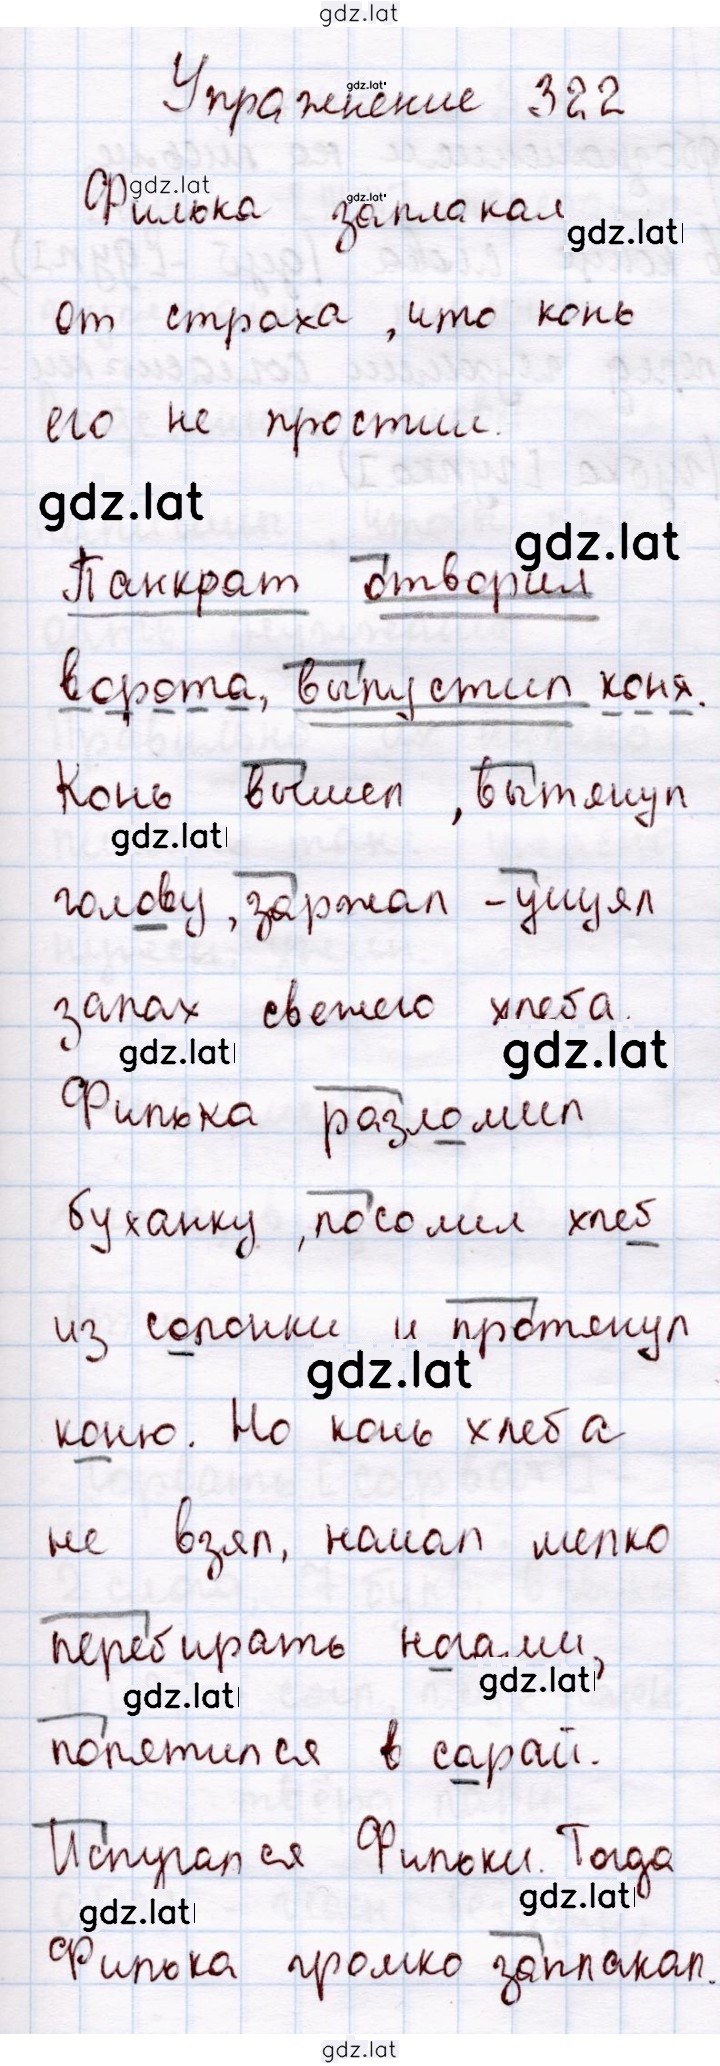 gdz.lat
Упражнение 322
gdz.lat
gdz.lat
gdz.lat
Филька заплакал
gdz.lat
от страха, что конь
его не простил.
gdz.lat
gdz.lat
Панкрат отворил
ворота, выпустил коня.
Конь вышел, вытянул
gdz.lat
голову, заржал - учуял
запах свежего хлеба.
gdz.lat
gdz.lat
Филька разломил
буханку, посолил хлеб
из солонки и протянул
gdz.lat
коню. Но конь хлеба
не взял, начал мелко
перебирать ногами,
gdz.lat
gdz.lat
попятился в сарай.
Испугался Фильки. Тогда
gdz.lat
gdz.lat
Филька громко заплакал.
gdz.lat